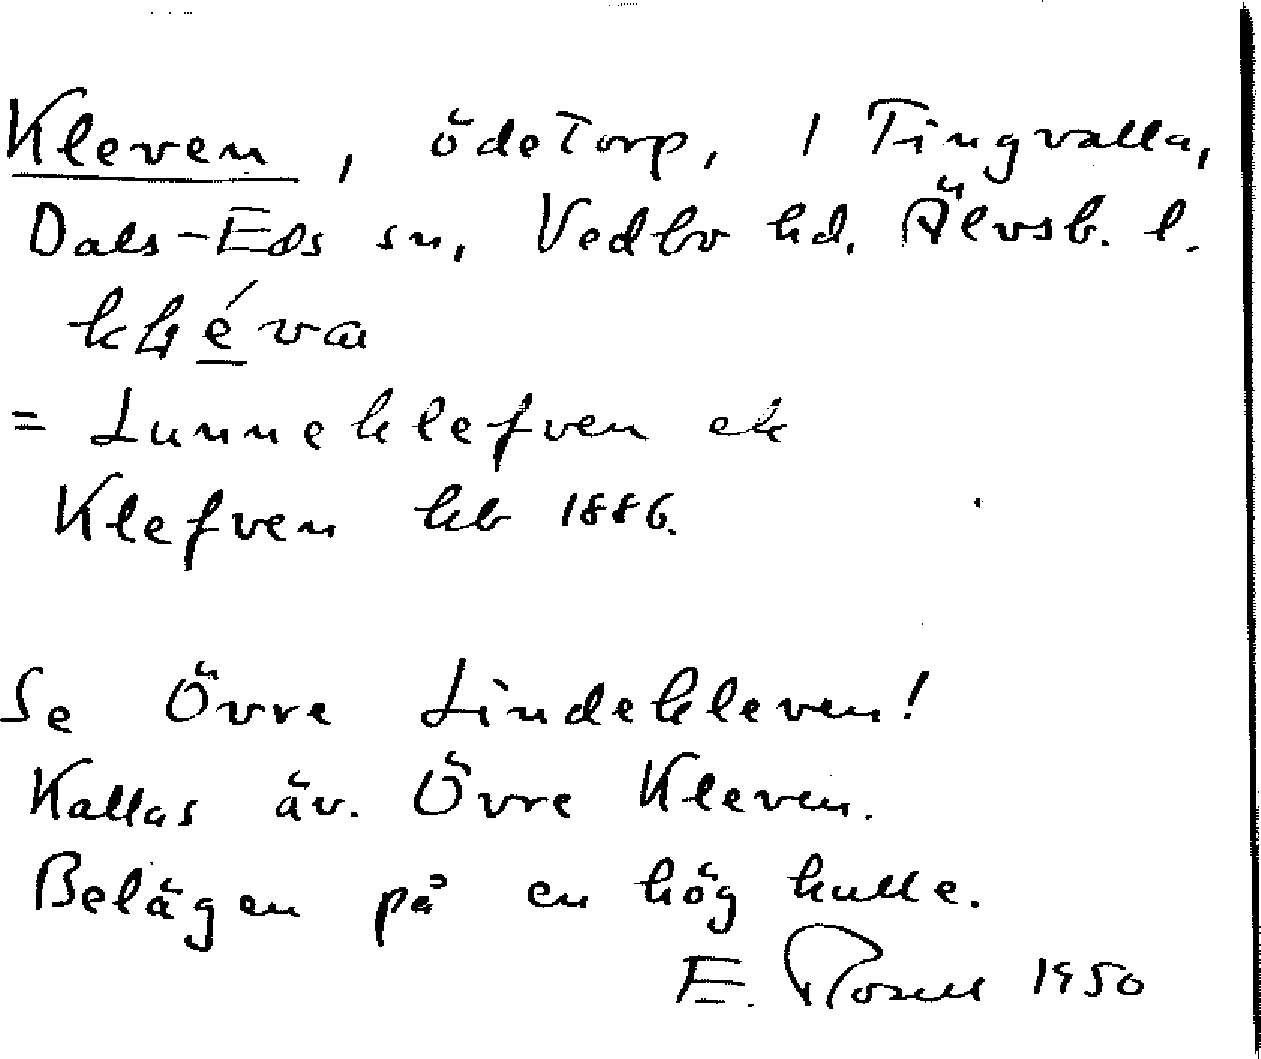 Kleven, ödetorp, 1 Tingvalla,
Dals-Eds sn, Vedbo hd. Älvsb. l.
= Lunneklefven ek
Klefven kb 1886.
Se Övre Lindekleven!
Kallas äv. Övre Kleven.
Belägen på en hög kulle.
E. Rosell 1950